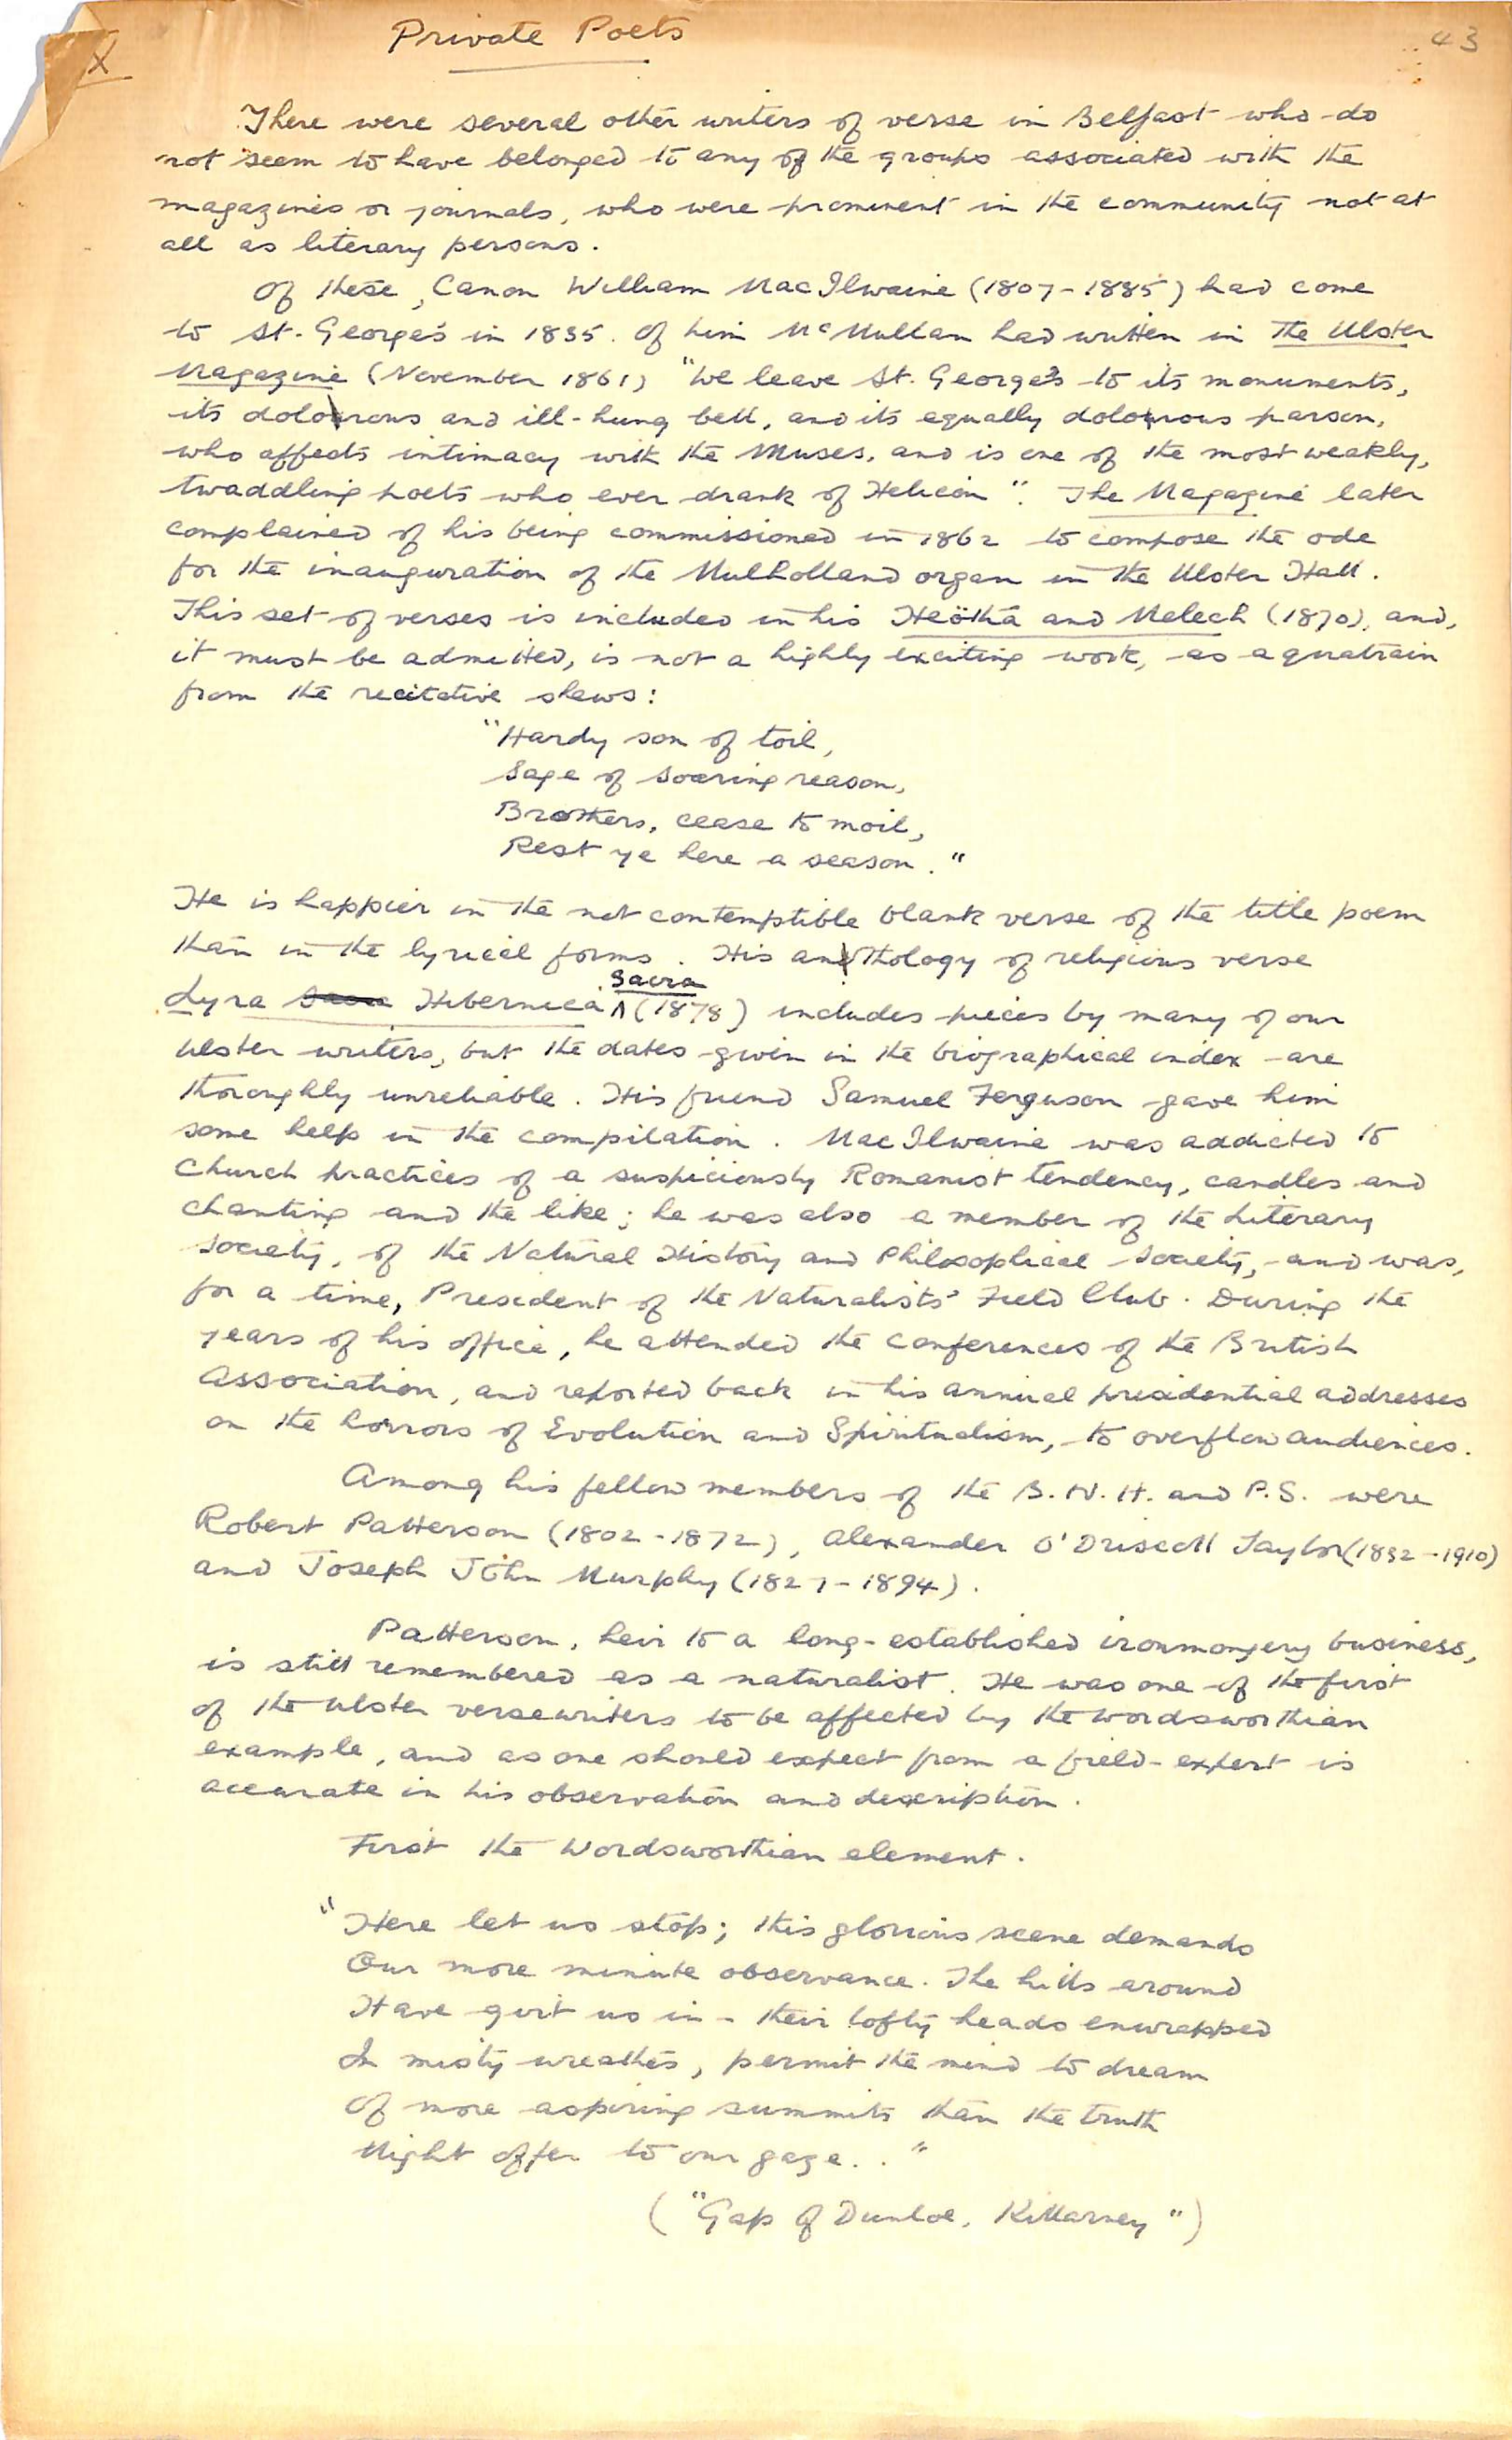 X
Private Poets
43
There were several other writers of verse in Belfast who do
not seem to have belonged to any of the groups associated with the
magazines or journals, who were prominent in the community not at
all as literary persons.
Of these, Canon William MacIlwaine (1807-1885) had come
to St. George's in 1835. Of him McMullan had written in The Ulster
Magazine (November 1861) "We leave St. George's to its monuments,
its dolorous and ill-hung bell, and its equally dolorous parson,
who affects intimacy with the Muses, and is one of the most weakly,
twaddling poets who ever drank of Helicon". The Magazine later
complained of his being commissioned in 1862 to compose the ode
for the inauguration of the Mulholland organ in the Ulster Hall.
This set of verses is included in his Heötha and Melech (1870), and,
it must be admitted, is not a highly exciting work, as a quatrain
from the recitative shews:
"Hardy son of toil,
Sage of soaring reason,
Brothers, cease to moil,
Rest ye here a season."
He is happier in the not contemptible blank verse of the title poem
than in the lyrical forms. His anthology of religious verse
Lyra Hibernica Sacra (1878) includes pieces by many of our
Ulster writers, but the dates given in the biographical index are
thoroughly unreliable. His friend Samuel Ferguson gave him
some help in the compilation. MacIlwaine was addicted to
Church practices of a suspiciously Romanist tendency, candles and
chanting and the like; he was also a member of the Literary
Society, of the Natural History and Philosophical Society, and was,
for a time, President of the Naturalists' Field Club. During the
years of his office, he attended the conferences of the British
Association, and reported back in his annual presidential addresses
on the horrors of Evolution and Spiritualism, to overflow audiences.
Among his fellow members of the B.N.H. and P.S. were
Robert Patterson (1802-1872), Alexander O'Driscoll Taylor (1832-1910)
and Joseph John Murphy (1827-1894).
Patterson, heir to a long-established ironmongery business,
is still remembered as a naturalist. He was one of the first
of the Ulster versewriters to be affected by the Wordsworthian
example, and as one should expect from a field-expert is
accurate in his observation and description.
First the Wordsworthian element.
"Here let us stop; this glorious scene demands
Our more minute observance. The hills around
Have girt us in - their lofty heads enwrapped
In misty wreathes, permit the mind to dream
Of more aspiring summits than the truth
Might offer to our gaze. . "
("Gap of Dunloe, Killarney")